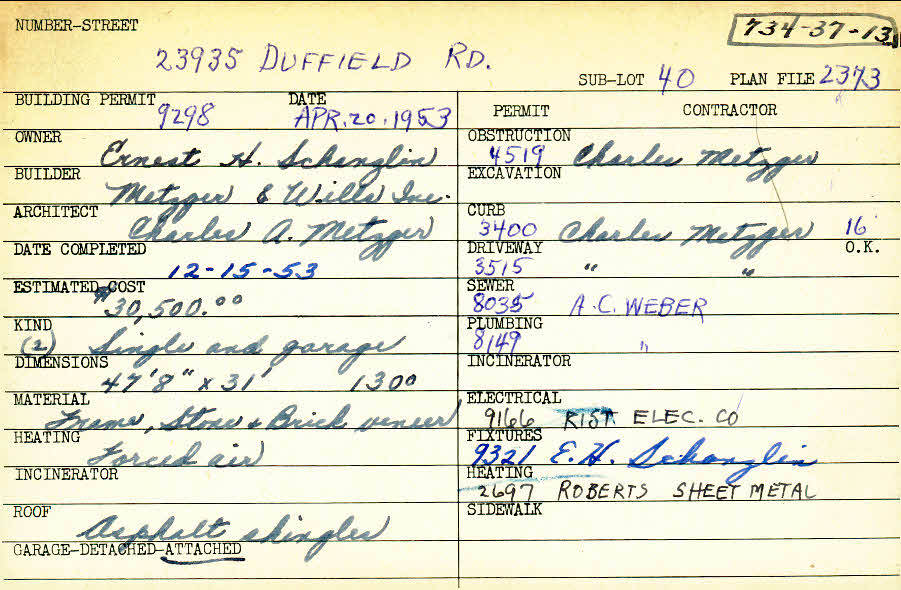 NUMBER-STREET
734-37-13
23935 DUFFIELD RD.
SUB-LOT 40 PLAN FILE 2373
BUILDING PERMIT DATE
9298 APR. 20. 1953
OWNER
Ernest H. Schanglin
BUILDER
Metzger & Wills Inc.
ARCHITECT
Charles A. Metzger
DATE COMPLETED
12-15-53
ESTIMATED COST
$30,500.00
KIND
(2) Single and garage
DIMENSIONS
47'8" x 31' 1300
MATERIAL
Frame, Stone & Brick veneer
HEATING
Forced air
INCINERATOR
ROOF
Asphalt shingles
GARAGE-DETACHED-ATTACHED
PERMIT CONTRACTOR
OBSTRUCTION
4519 Charles Metzger
EXCAVATION
CURB
3400 Charles Metzger 16
DRIVEWAY O.K.
3515 " "
SEWER
8035 A.C. WEBER
PLUMBING
8149 "
INCINERATOR
ELECTRICAL
9166 RIST ELEC. CO
FIXTURES
9321 E. H. Schanglin
HEATING
2697 ROBERTS SHEET METAL
SIDEWALK